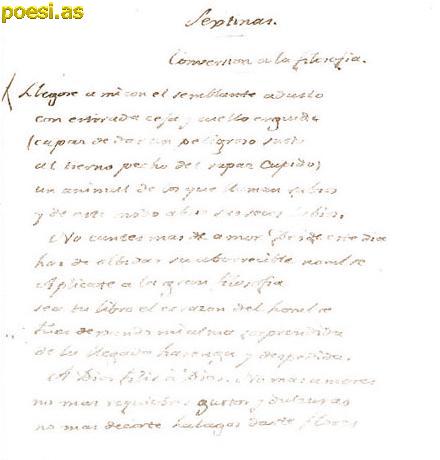 poesi.as
Sextinas.
Conversion a la filosofia.
Llegose a mi con el semblante adusto
con estirada ceja y cuello erguido
(capaz de dar un peligroso susto
al tierno pecho del rapaz Cupido)
un animal de los que llaman sabios
y de este modo abrio sus secos labios.
No cantes mas de amor. Desde este dia
has de olbidar su aborrecible nombre
Aplicate a la gran filosofia
sea tu libro el corazon del hombre
fuese dejando mi alma sorprendida
de la llegada harenga y despedida.
A Dios filis à Dios. No mas amores
no mas requiebros gustos y dulzuras
no mas decirte halagos darte flores